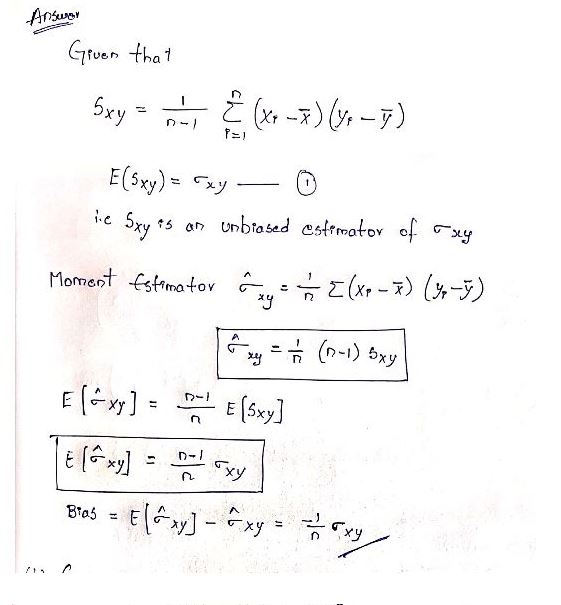 Answer
Given that
Sxy = 1/(n-1) Σ_{i=1}^{n} (xi - x̄)(yi - ȳ)
E(Sxy) = σxy — ①
i.e Sxy is an unbiased estimator of σxy
Moment Estimator σ̂xy = 1/n Σ(xi - x̄) (yi - ȳ)
σ̂xy = 1/n (n-1) Sxy
E[σ̂xy] = (n-1)/n E[Sxy]
E[σ̂xy] = (n-1)/n σxy
Bias = E[σ̂xy] - σ̂xy = -1/n σxy